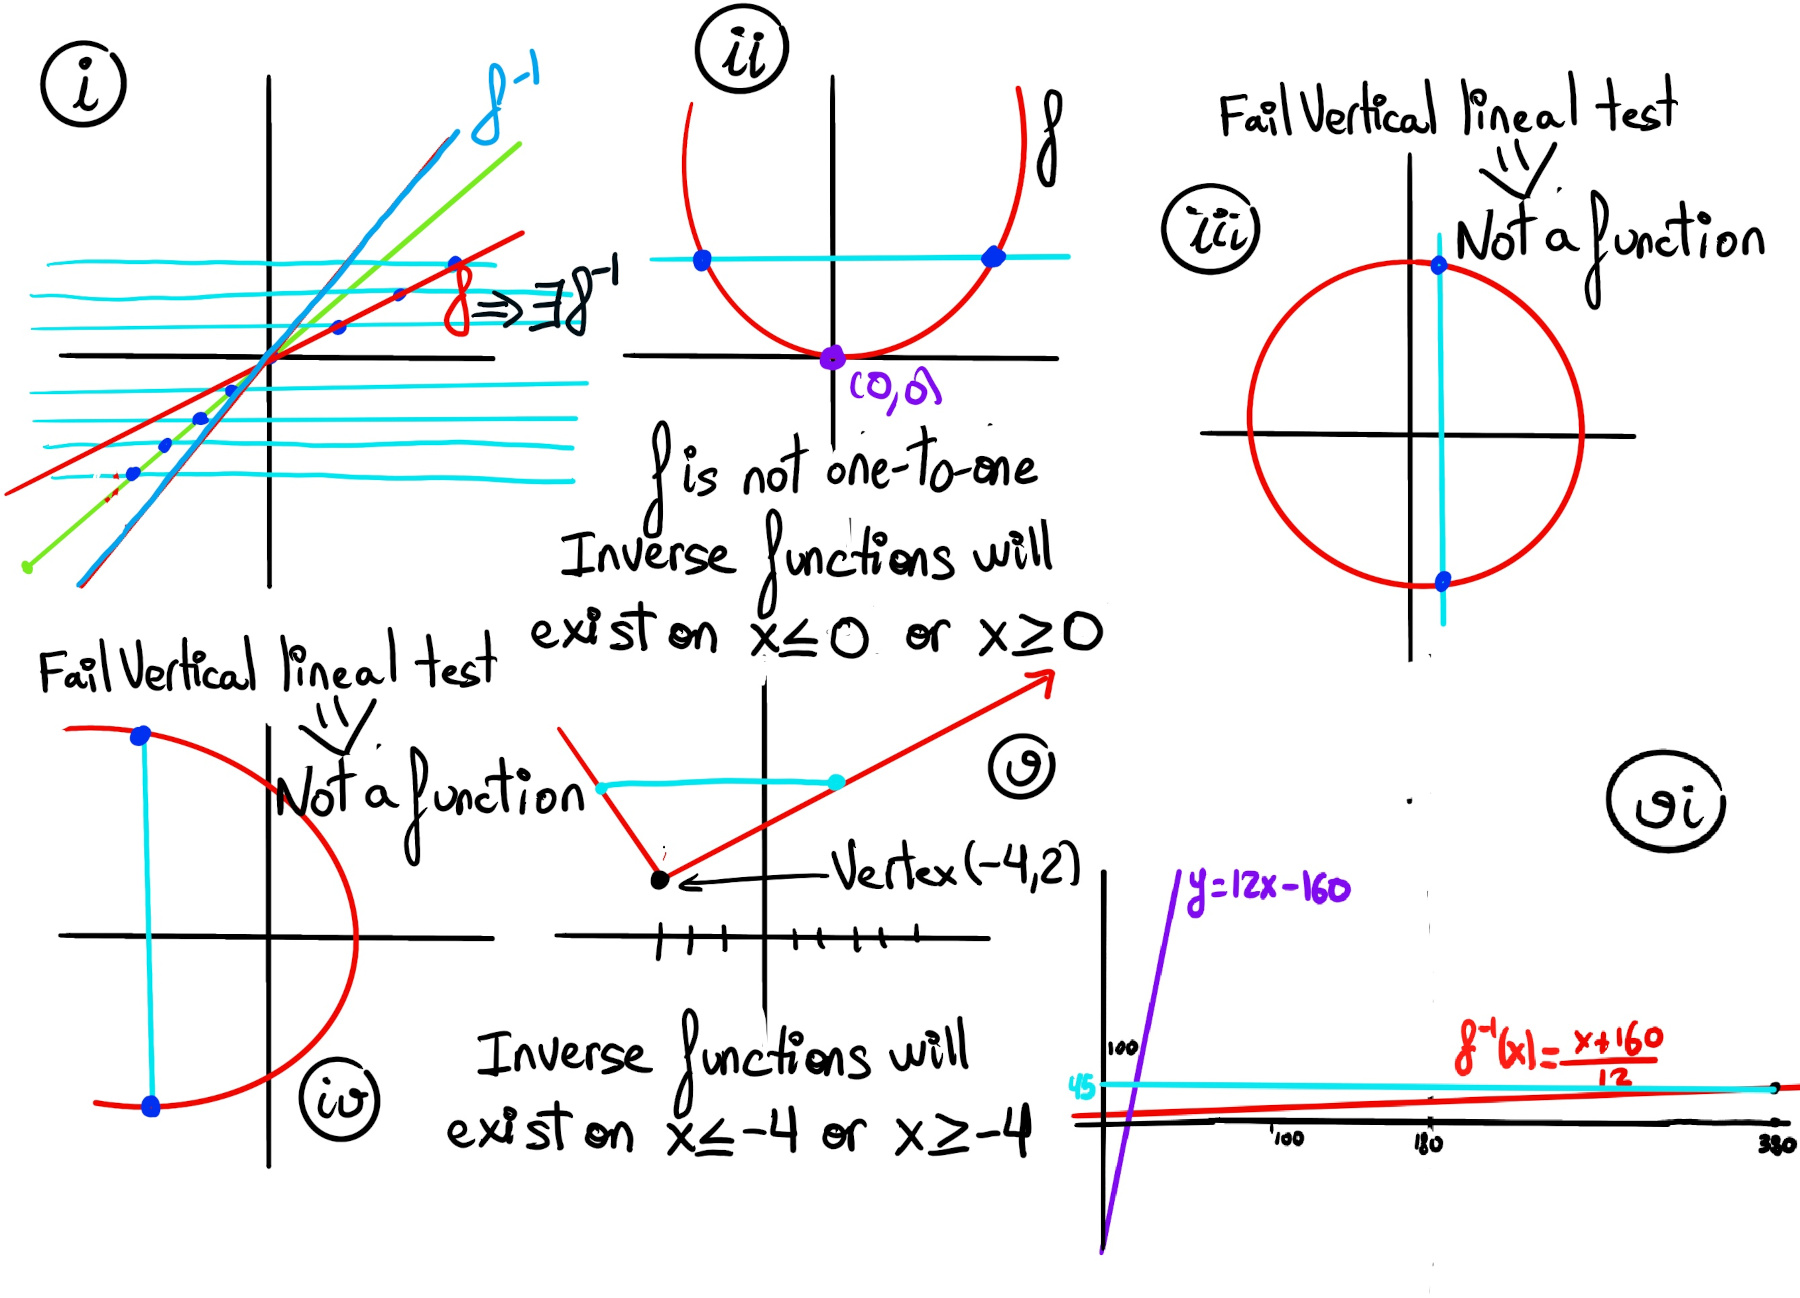 i
f⁻¹
f ⇒ ∃f⁻¹
ii
f
(0,0)
f is not one-to-one
Inverse functions will
exist on x≤0 or x≥0
Fail Vertical lineal test
Not a function
iii
Fail Vertical lineal test
Not a function
iv
v
Vertex(-4,2)
Inverse functions will
exist on x≤-4 or x≥-4
vi
y=12x-160
100
45
f⁻¹(x)=x+160
12
100
180
380